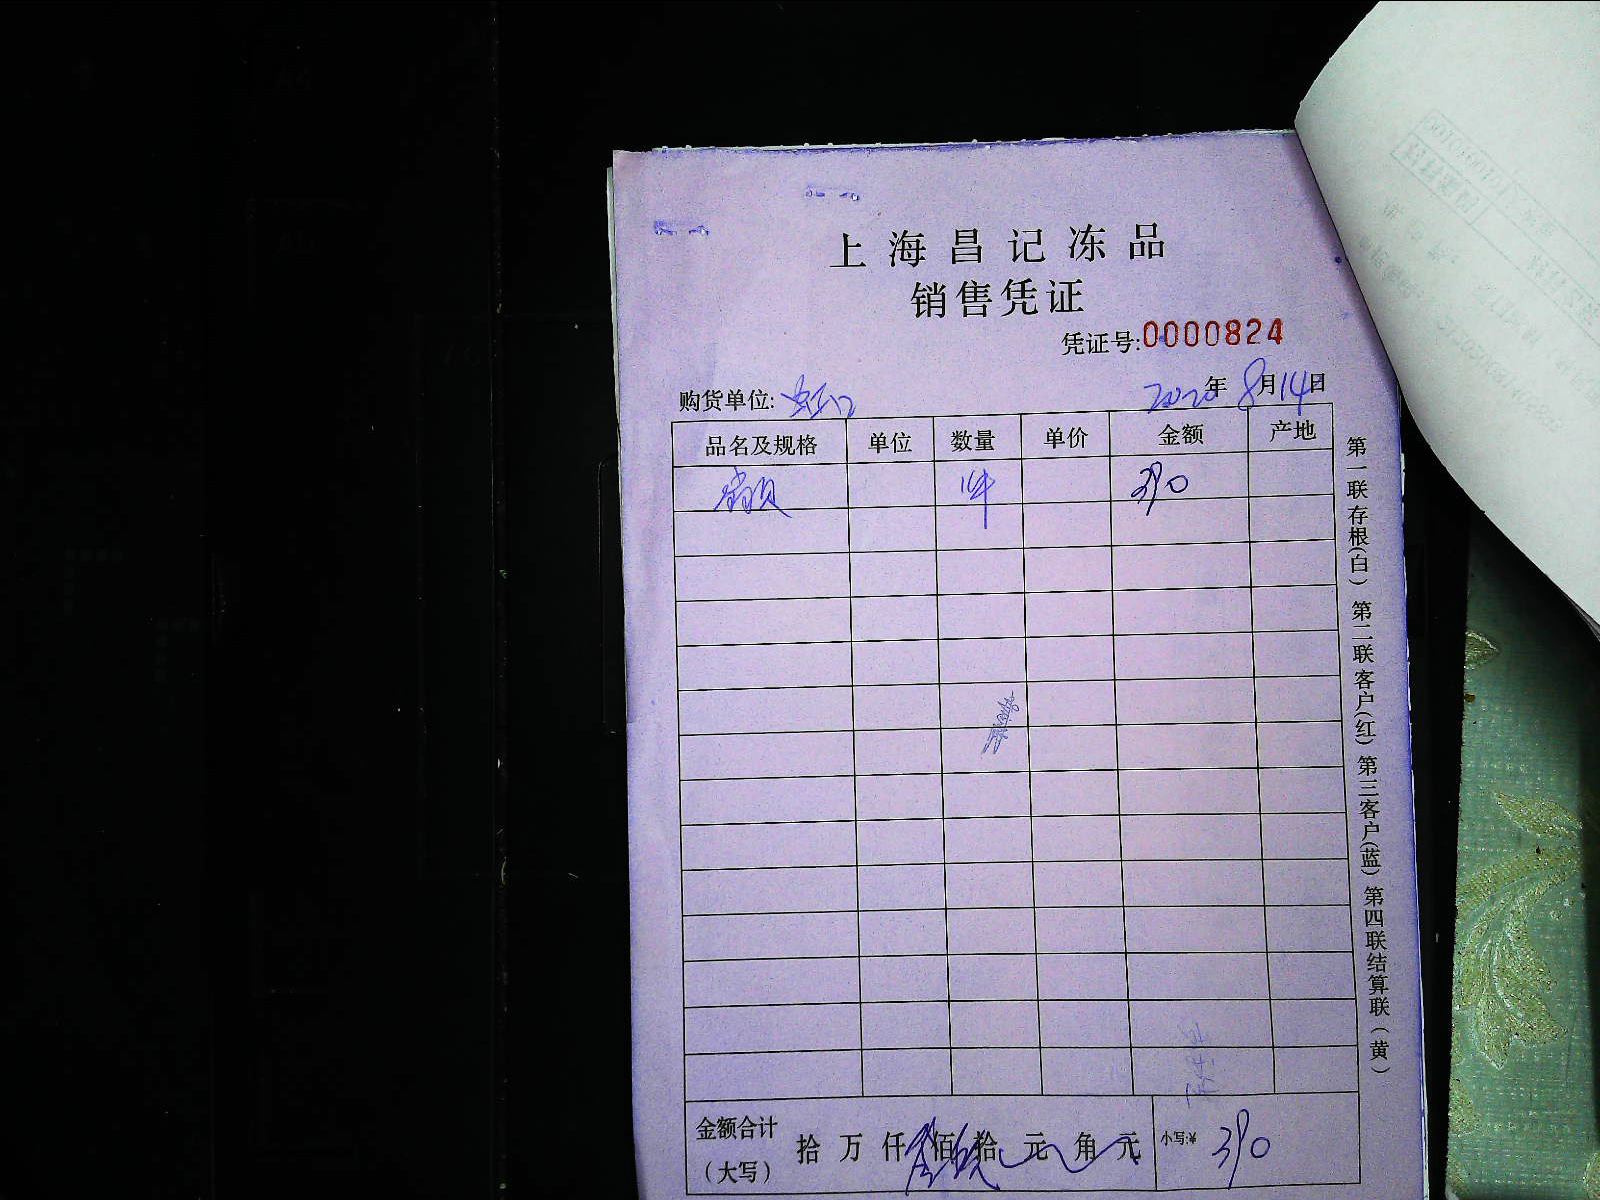 上海昌记冻品
销售凭证
凭证号:0000824
购货单位: 虹口 2020年8月14日
品名及规格 单位 数量 单价 金额 产地
1件 390
金额合计（大写） 拾万仟佰拾元角元 小写:¥ 390
第一联存根(白) 第二联客户(红) 第三客户(蓝) 第四联结算联(黄)